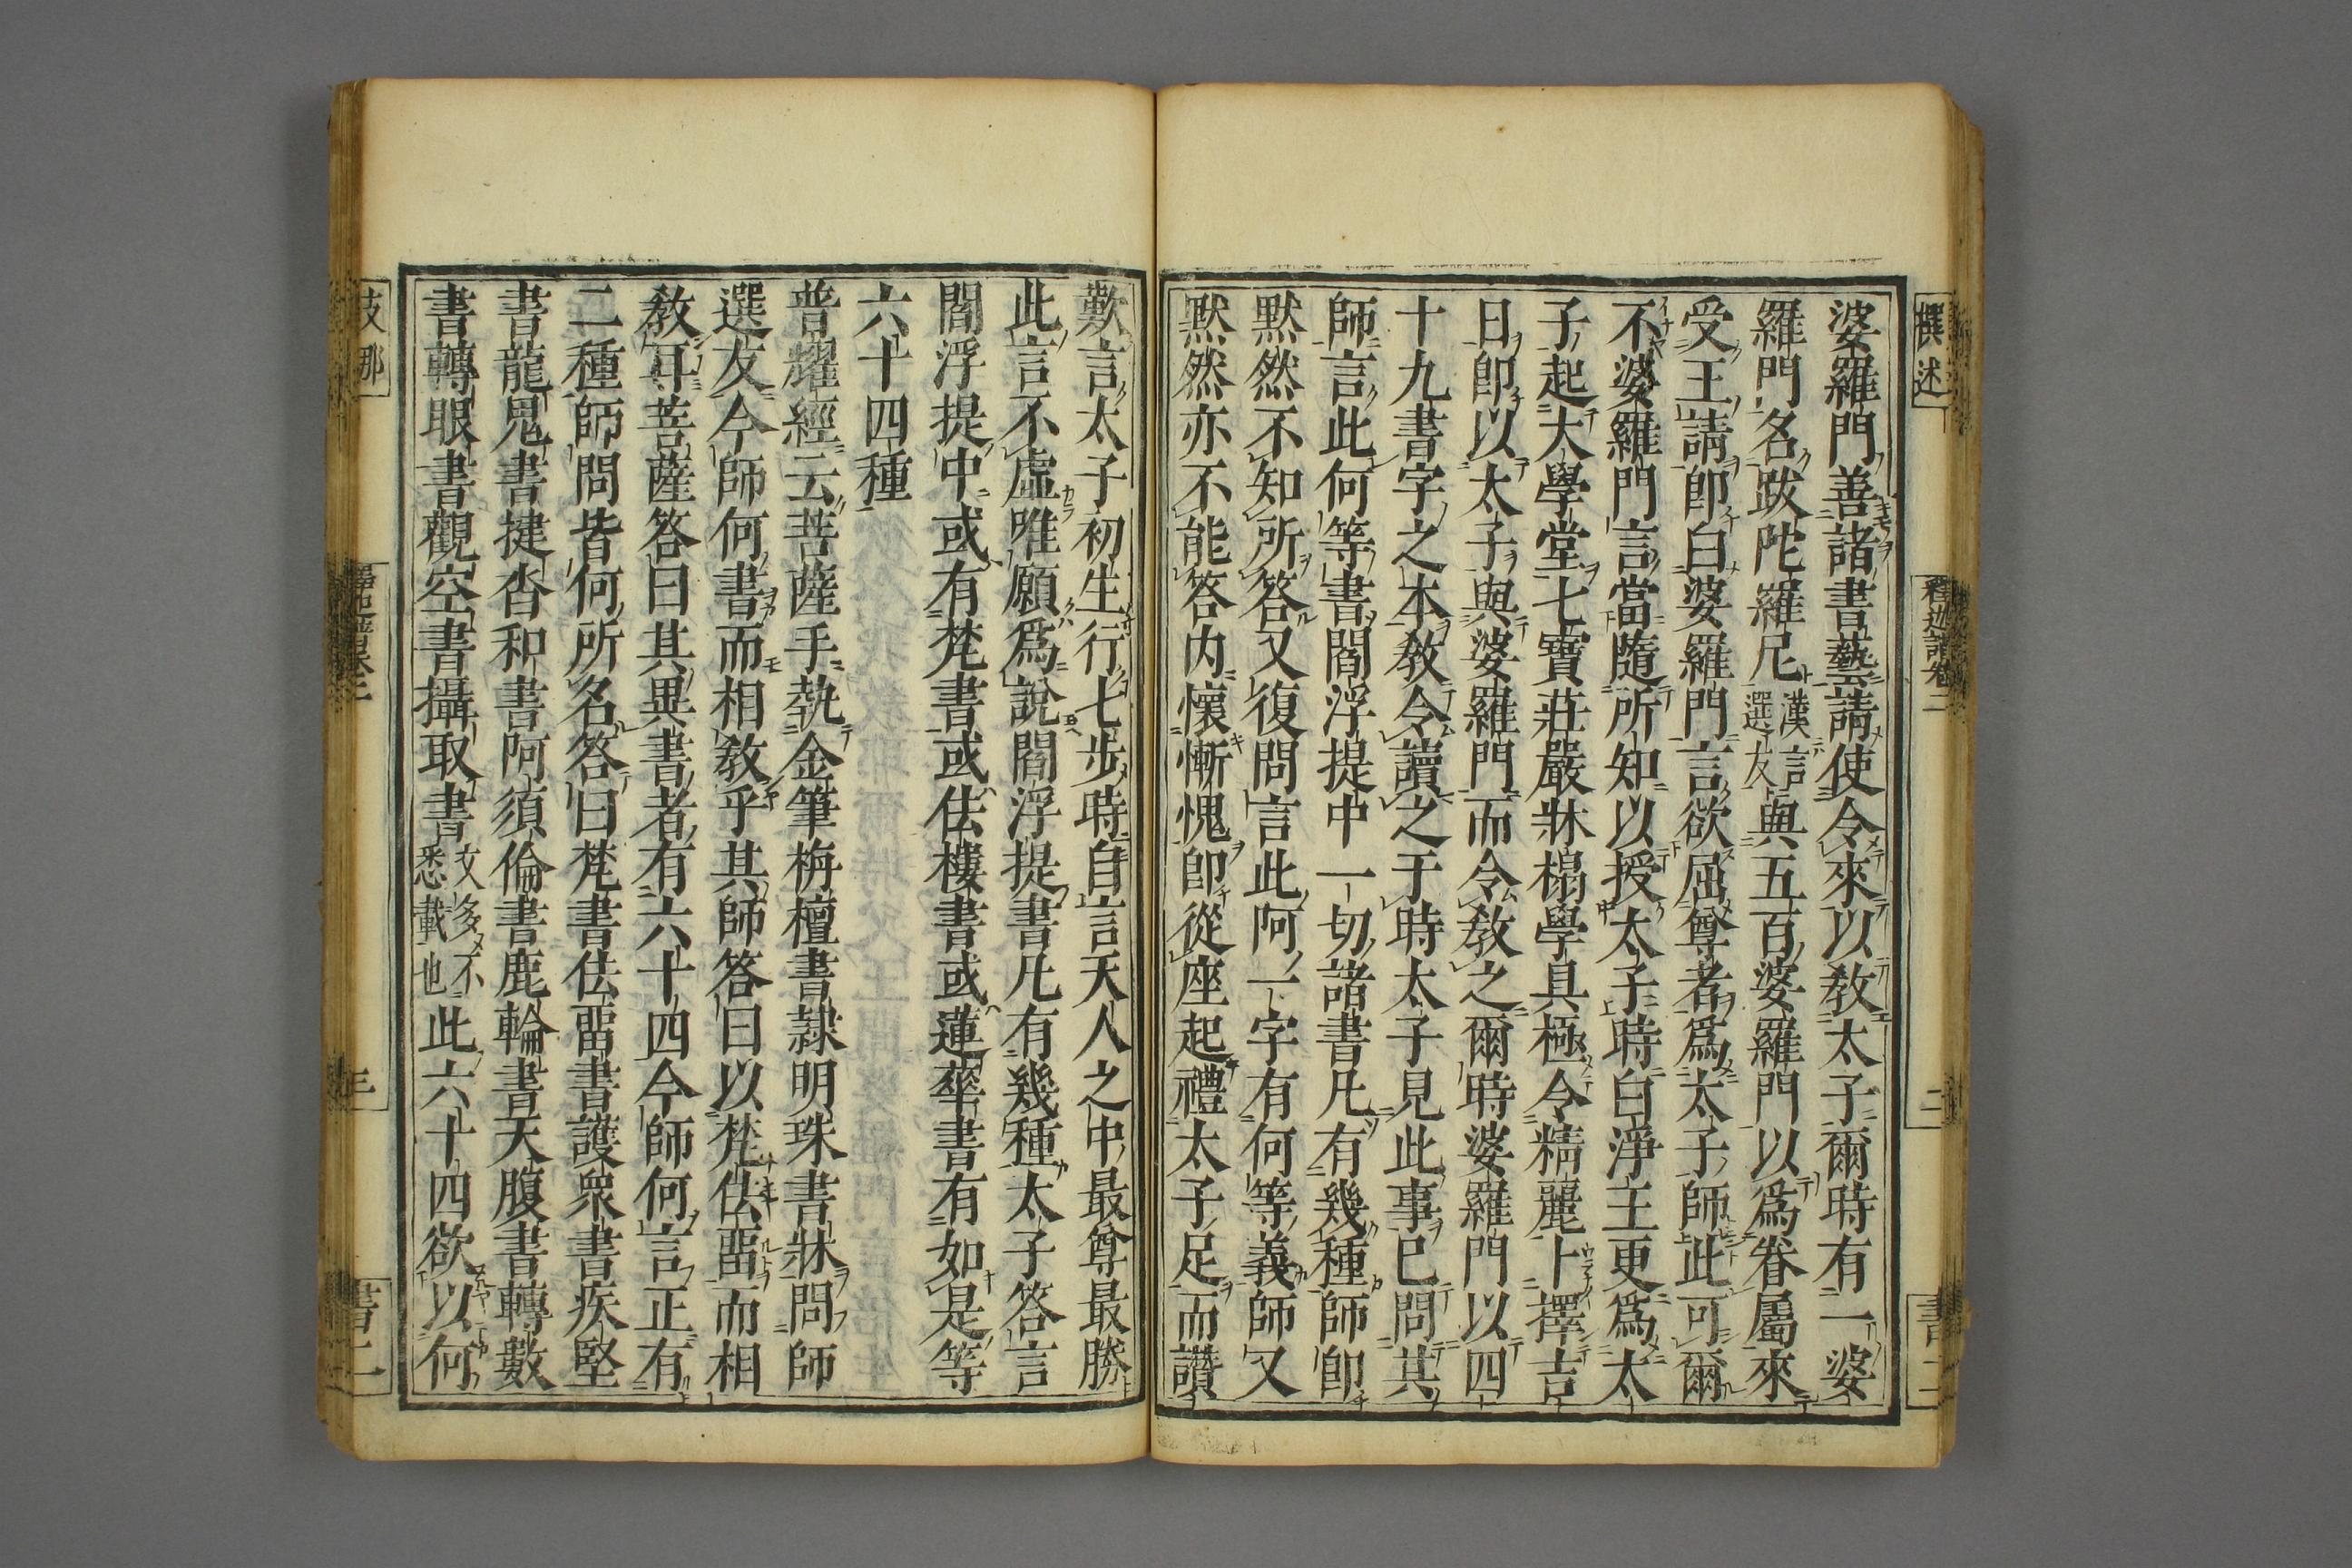 撰述
釋迦譜卷二
二
書二
婆羅門善諸書藝請使令來以教太子爾時有一婆
羅門名跋陀羅尼漢言選友與五百婆羅門以爲眷屬來
受王請卽白婆羅門言欲屈尊者爲太子師此可爾
不婆羅門言當隨所知以授太子時白淨王更爲太
子起大學堂七寶莊嚴牀榻學具極令精麗卜擇吉
日卽以太子與婆羅門而令教之爾時婆羅門以四
十九書字之本教令讀之于時太子見此事已問其
師言此何等書閻浮提中一切諸書凡有幾種師卽
默然不知所答又復問言此阿一字有何等義師又
默然亦不能答内懷慚愧卽從座起禮太子足而讚
歎言太子初生行七步時自言天人之中最尊最勝
此言不虛唯願爲說閻浮提書凡有幾種太子答言
閻浮提中或有梵書或佉樓書或蓮華書有如是等
六十四種
普耀經云菩薩手執金筆栴檀書隸明珠書牀問師
選友今師何書而相教乎其師答曰以梵佉畱而相
教耳菩薩答曰其異書者有六十四今師何言正有
二種師問皆何所名答曰梵書佉畱書護衆書疾堅
書龍鬼書揵沓和書阿須倫書鹿輪書天腹書轉數
書轉眼書觀空書攝取書文多不悉載也此六十四欲以何
支那
三
書二